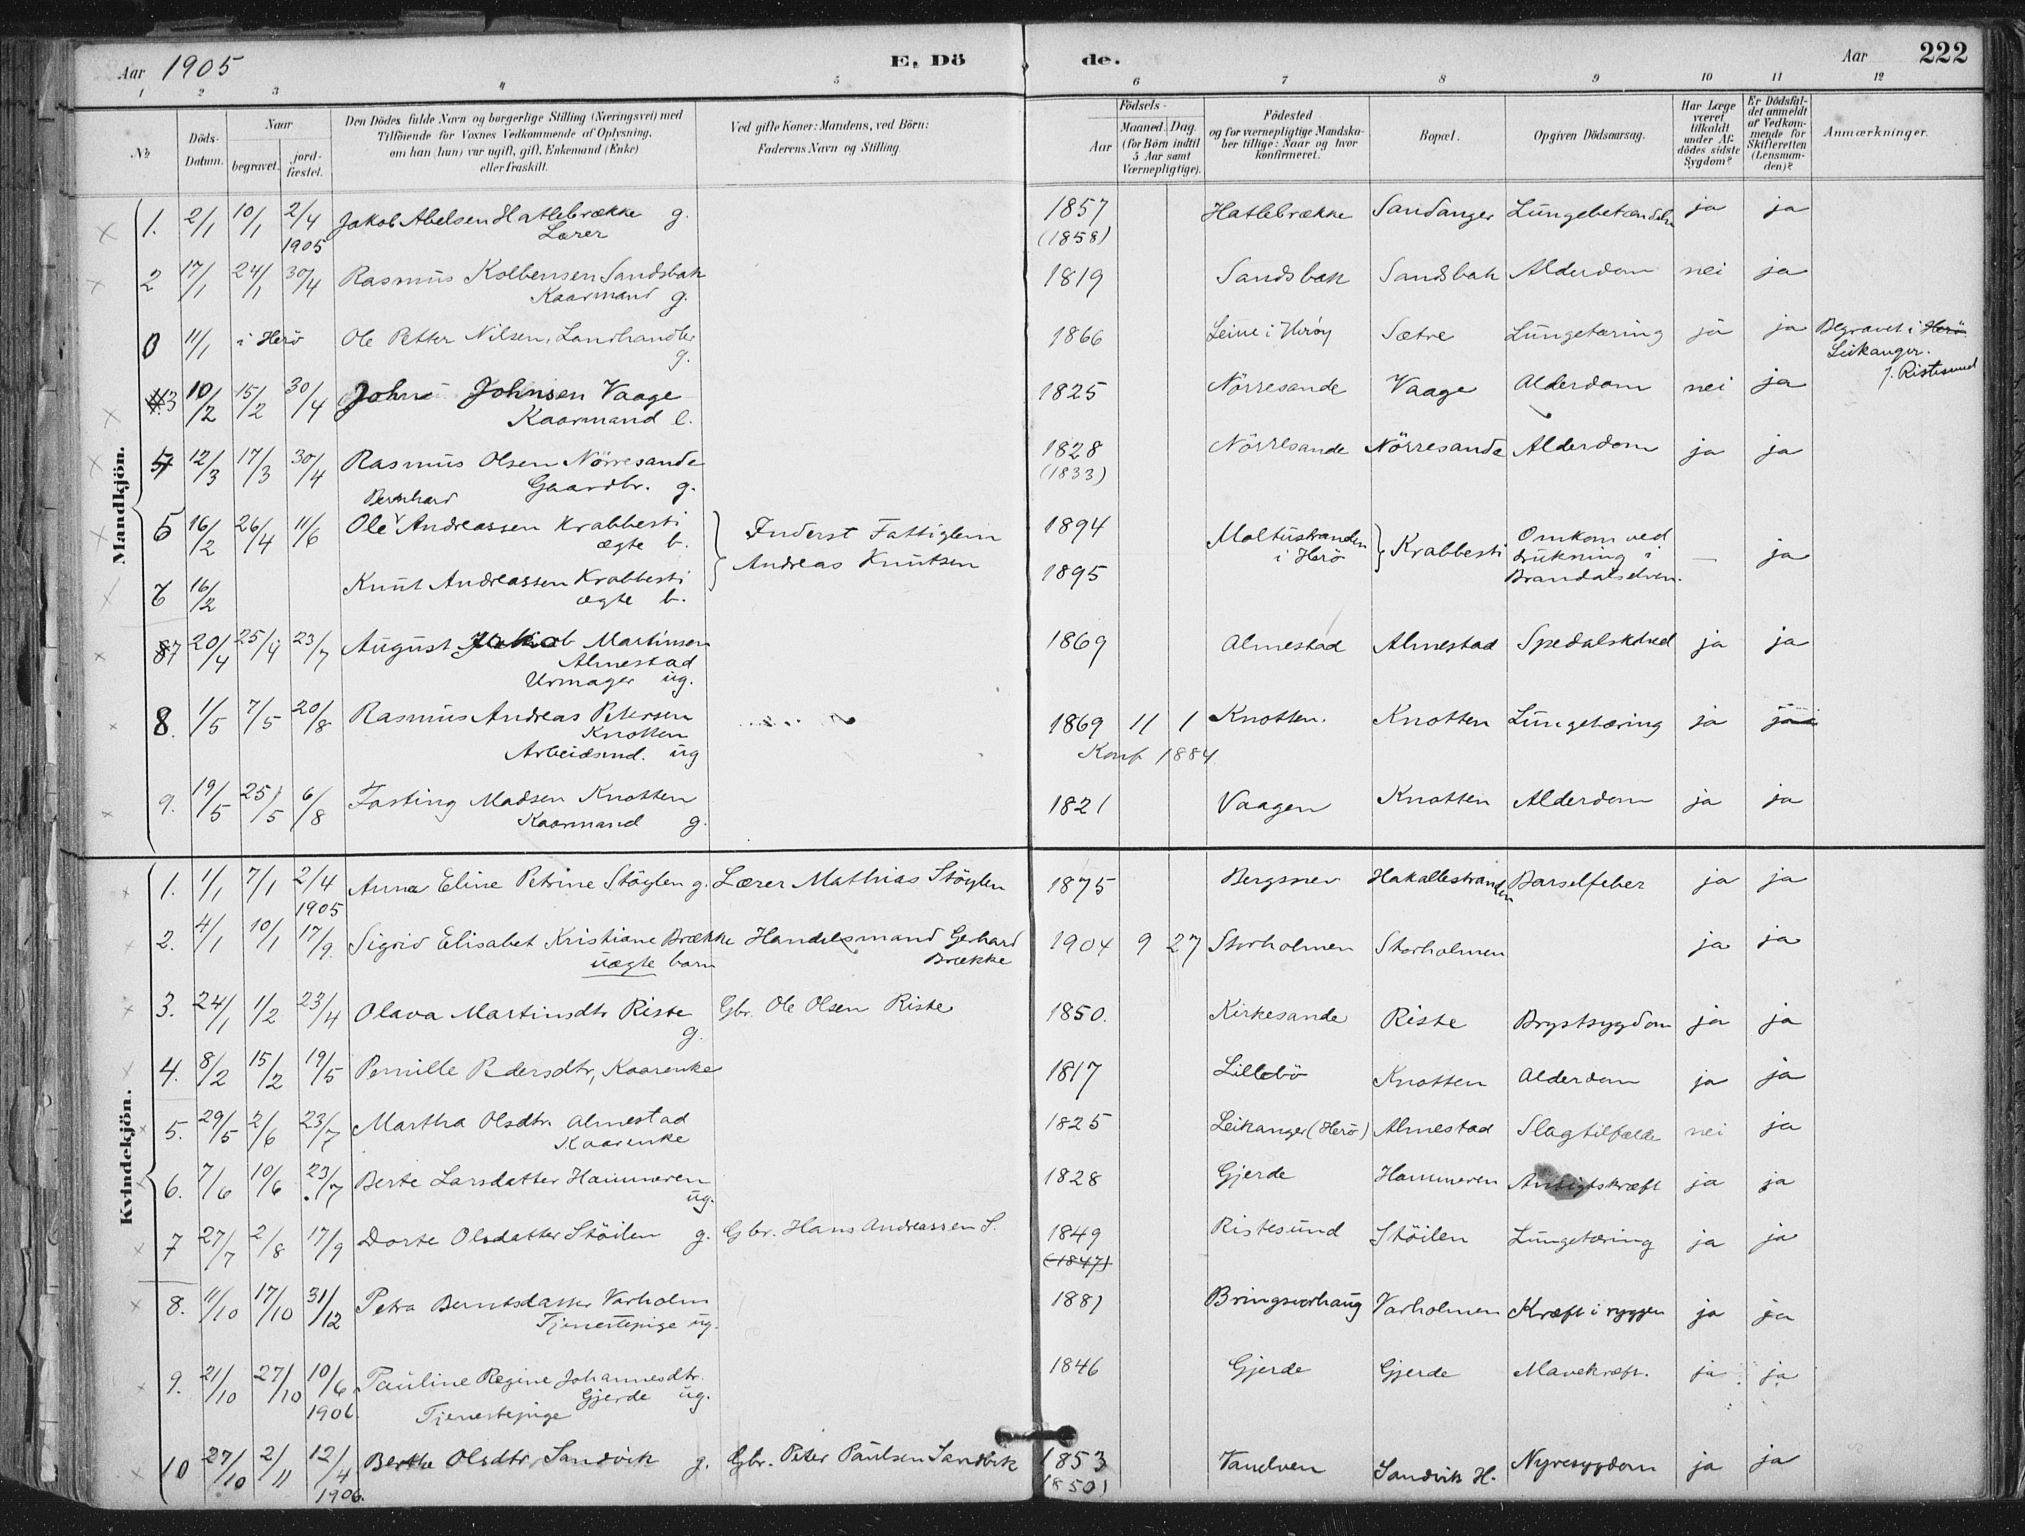 Aar 1905
E. Dö
de.
Aar
222
1 2 3 4 5 6 7 8 9 10 11 12
No
Döds-Datum.
Naar
begravet.
jord-fæstet.
Den Dödes fulde Navn og borgerlige Stilling (Næringsvei) med
Tilföiende for Voxnes Vedkommende af Oplysning,
om han (hun) var ugift, gift, Enkemand (Enke)
eller fraskilt.
Ved gifte Koner: Mandens, ved Börn:
Faderens Navn og Stilling.
Födsels-
Aar
Maaned. Dag
(for Börn indtil
5 Aar samt
Værnepligtige).
Födested
og for værnepligtige Mandska-
ber tillige: Naar og hvor
konfirmeret.
Bopæl.
Opgiven Dödsaarsag.
Har Læge
været
tilkaldt
under Af-
dödes sidste
Sygdom?
Er Dödsfal-
det anmeldt
af Vedkom-
mende for
Skifteretten
(Lensman-
den)?
Anmærkninger.
Mandkjön.
1. 2/1 10/1 2/4 Jakob Abelsen Hatlebrække g. 1857 Hatlebrække Sandanger Lungebetændelse ja ja
1905 Lærer (1858)
2 17/1 24/1 30/4 Rasmus Kolbensen Sandsbak 1819 Sandsbak Sandsbak Alderdom nei ja
Kaarmand g.
0 11/1 i Herö Ole Petter Nilsen, Landhandler 1866 Leine i Heröy Sætre Lungetæring ja ja Begravet i Herö
g. Leikanger.
J. Ristesund
3 10/2 15/2 30/4 John Johnsen Vaage 1825 Nörresande Vaage Alderdom nei ja
Kaarmand e.
4 12/3 17/3 30/4 Rasmus Olsen Nörresande 1828 Nörresande Nörresande Alderdom ja ja
Gaardbr. g. (1833)
Bernhard
5 16/2 26/4 11/6 Ole Andreassen Krabbesti 1894 Moltustranden Krabbesti Omkom ved
ægte b. Inderst Fattiglem i Herö drukning i — ja
6 16/2 Knut Andreassen Krabbesti Andreas Knutsen 1895 Brandalselven.
ægte b.
7 20/4 25/4 23/7 August Jakob Martinsen 1869 Almestad Almestad Spedalskhed ja ja
Almestad
Urmager ug.
8. 1/5 7/5 20/8 Rasmus Andreas Petersen 1869 11 1 Knotten. Knotten Lungetæring ja ja
Knotten Konf 1884.
Arbeidsmd. ug
9. 19/5 25/5 6/8 Fasting Madsen Knotten 1821 Vaagen Knotten Alderdom ja ja
Kaarmand g.
Kvindekjön.
1. 1/1 7/1 2/4 Anna Eline Petrine Stöylen g. Lærer Mathias Stöylen 1875 Bergsnev Hakallestranden Barselfeber ja ja
1905
2. 4/1 10/1 17/9. Sigrid Elisabet Kristiane Brække Handelsmand Gerhard 1904 9 27 Storholmen Storholmen ja ja
uægte barn Brække
3. 24/1 1/2 23/4 Olava Martinsdtr Riste Gbr. Ole Olsen Riste 1850. Kirkesande Riste Brystsygdom ja ja
g.
4. 8/2 15/2 19/5 Pernille Pedersdtr, Kaarenke 1817 Lillebö Knotten Alderdom ja ja
5. 29/5 2/6 23/7 Martha Olsdtr. Almestad 1825 Leikanger (Herö) Almestad Slagtilfælde nei ja
Kaarenke
6. 7/6 10/6 23/7 Berte Larsdatter Hammeren 1828 Gjerde Hammeren Ansigtskræft ja ja
ug.
7 27/7 2/8 17/9 Dorte Olsdatter Stöilen g. Gbr. Hans Andreassen S. 1849 Ristesund Stöilen Lungetæring ja ja
(1847)
8. 11/10 17/10 31/12 Petra Berntsdatter Varholm 1881 Bringsvorhaug Varholmen Kræft i ryggen ja ja
Tjenestepige ug.
9. 21/10 27/10 10/6 Pauline Regine Johannesdtr. 1846 Gjerde Gjerde Mavekræft. ja ja
1906. Gjerde ug.
Tjenestepige
10 27/10 2/11 12/4 Berthe Olsdtr, Sandvik g. Gbr. Peter Paulsen Sandvik 1853 Vanelven Sandvik H. Nyresygdom ja ja
1906. 1850)